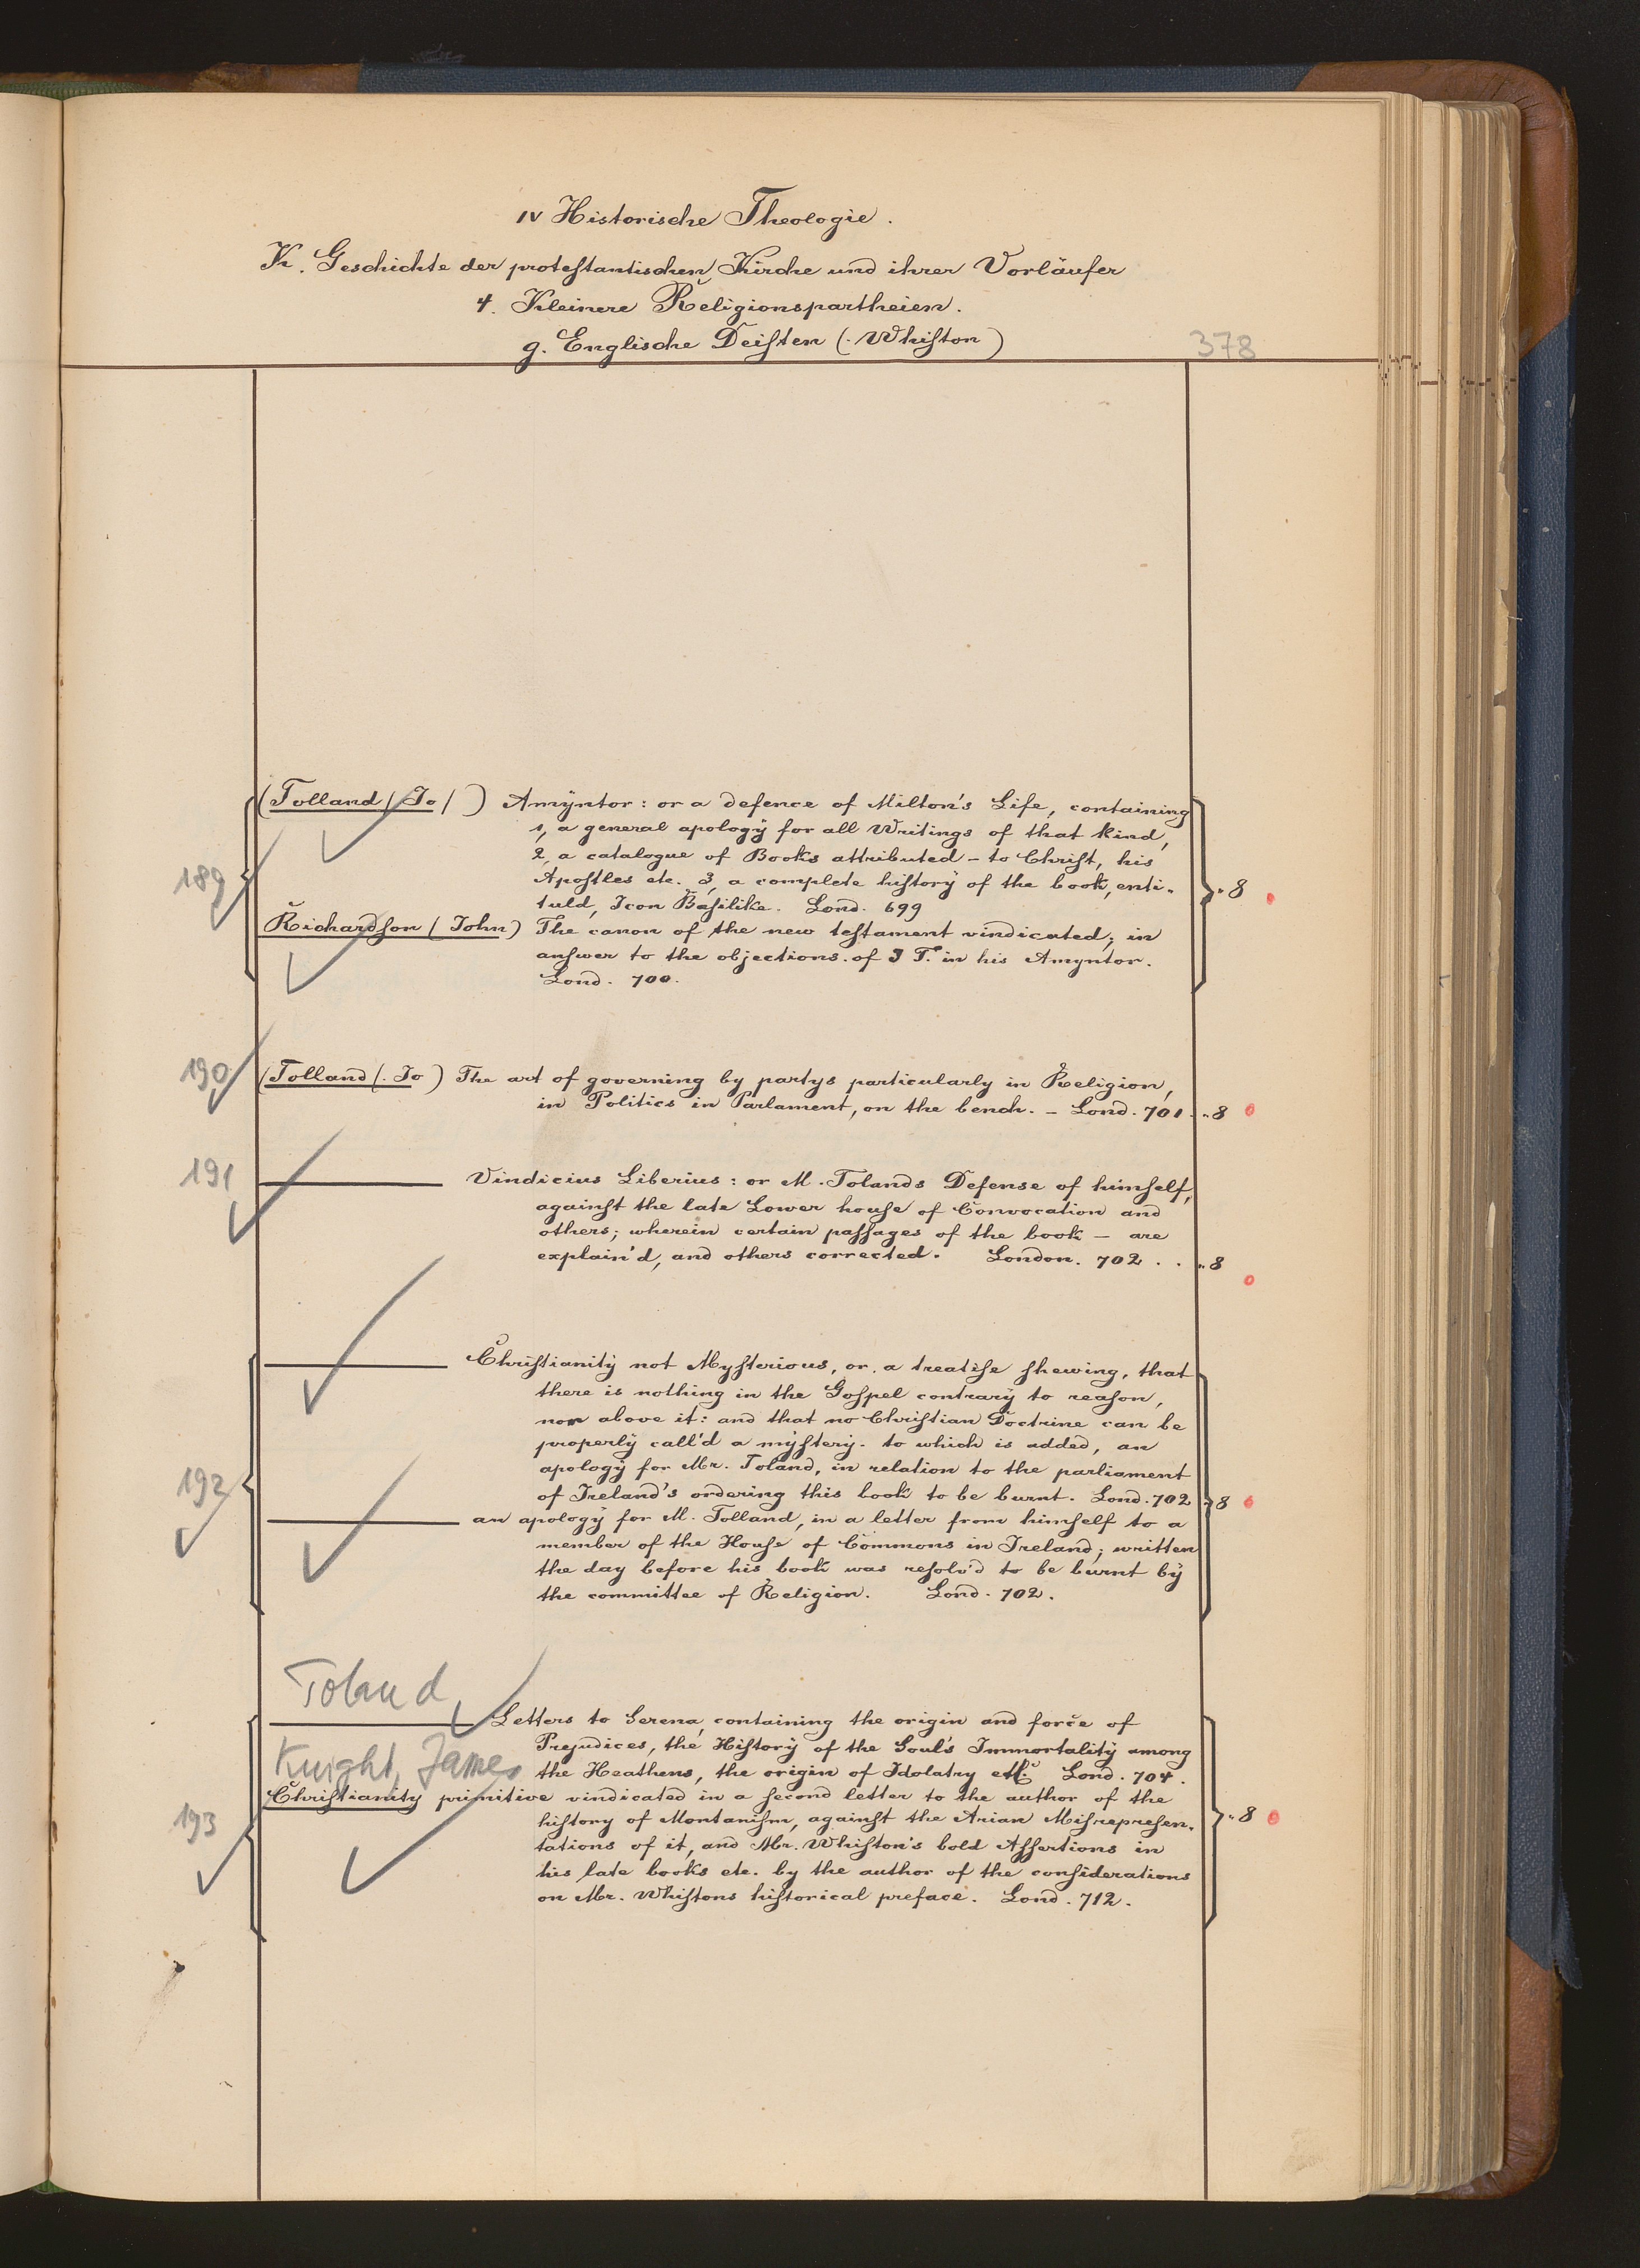 IV Historische Theologie.
K. Geschichte der protestantischen Kirche und ihrer Vorläufer
4. Kleinere Religionspartheien.
g. Englische Deisten (. Whiston)
378
(Tolland / Jo / ) Amyntor: or a defence of Milton's Life, containing
1, a general apology for all Writings of that kind,
2, a catalogue of Books attributed - to Christ, his
189
Apostles etc. 3, a complete history of the book, enti-
" 8
tuld, Icon Basilike. Lond. 699
Richardson (John) The canon of the new testament vindicated; in
answer to the objections. of J T. in his Amyntor.
Lond. 700.
190
(Tolland (. Jo ) The art of governing by partys particularly in Religion,
in Politics in Parlament, on the bench. - Lond. 701. " 8
191
Vindicius Liberius: or M. Tolands Defense of himself,
against the late Lower house of Convocation and
others; wherein certain passages of the book - are
explain'd, and others corrected. London. 702 . . " 8
Christianity not Mysterious, or. a treatise shewing, that
there is nothing in the Gospel contrary to reason,
nor above it: and that no Christian Doctrine can be
properly call'd a mystery. to which is added, an
apology for Mr. Toland, in relation to the parliament
192
of Ireland's ordering this book to be burnt. Lond. 702 8
an apology for M. Tolland, in a letter from himself to a
member of the House of Commons in Ireland; written
the day before his book was resolv'd to be burnt by
the committee of Religion. Lond. 702.
Toland
Letters to Serena, containing the origin and force of
Prejudices, the History of the Soul's Immortality among
Knight, James
the Heathens, the origin of Idolatry etc. Lond. 704.
Christianity primitive vindicated in a second letter to the author of the
193
history of Montanism, against the Arian Misrepresen-
" 8
tations of it, and Mr. Whiston's bold Assertions in
his late books etc. by the author of the considerations
on Mr. Whistons historical preface. Lond. 712.